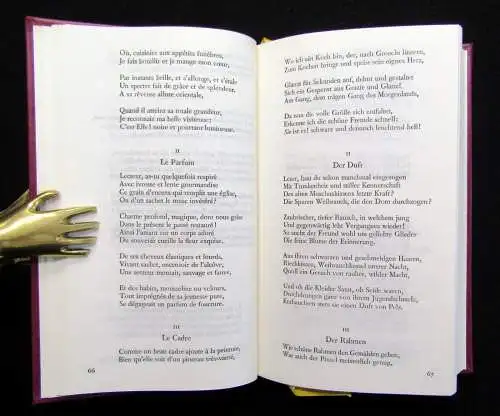 Où, cuisinier aux appétits funèbres,
Je fais bouillir et je mange mon cœur,
Par instants brille, et s'allonge, et s'étale
Un spectre fait de grâce et de splendeur.
A sa rêveuse allure orientale,
Quand il atteint sa totale grandeur,
Je reconnais ma belle visiteuse:
C'est Elle! noire et pourtant lumineuse.
II
Le Parfum
Lecteur, as-tu quelquefois respiré
Avec ivresse et lente gourmandise
Ce grain d'encens qui remplit une église,
Ou d'un sachet le musc invétéré?
Charme profond, magique, dont nous grise
Dans le présent le passé restauré!
Ainsi l'amant sur un corps adoré
Du souvenir cueille la fleur exquise.
De ses cheveux élastiques et lourds,
Vivant sachet, encensoir de l'alcôve,
Une senteur montait, sauvage et fauve,
Et des habits, mousseline ou velours,
Tout imprégnés de sa jeunesse pure,
Se dégageait un parfum de fourrure.
III
Le Cadre
Comme un beau cadre ajoute à la peinture,
Bien qu'elle soit d'un pinceau très-vanté,
66
Wo ich ein Koch bin, der, nach Gruscht lüstern,
Zum Kochen bringt und speist sein eignes Herz,
Glänzt für Sekunden auf, dehnt und gestaltet
Sich ein Gespenst aus Grazie und Glanz.
Am Gang, dem trägen Gang des Morgenlands,
Da du die volle Größe sich entfaltet,
Erkenne ich die schöne Freunde schnell:
Sie ist es! schwarz und dennoch leuchtend hell!
II
Der Duft
Leser, hast du schon manchmal eingesogen
Mit Trunkenheit und stiller Kennerschaft
Des alten Moschuskissens letzte Kraft?
Die Spuren Weihrauch, die den Dom durchzogen?
Zaubrischer, tiefer Rausch, in welchem jung
Und gegenwärtig Vergangnes wieder!
So steht der Freund wohl um geliebte Glieder
Die feine Blume der Erinnerung.
Aus schweren und geschmeidigen Haaren,
Riechkissen, Weihrauchkessel unsrer Nacht,
Quoll ein Geruch von wilder, Macht,
Und ob die Kleider Samt, ob Seide waren,
Durchdrungen ganz von ihrem Jugendschmelz,
Enthauchten stets einen Duft von Pelz.
III
Der Rahmen
Wie schöne Rahmen den Gemälden geben,
Was auch der Pinsel meisterlich getan,
67